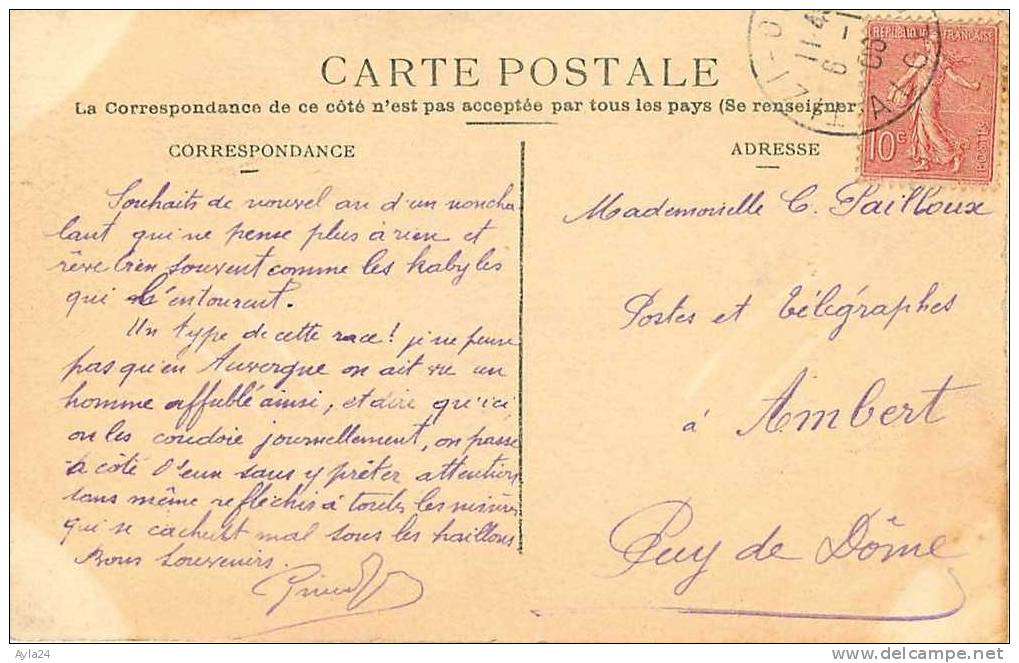 CARTE POSTALE
La Correspondance de ce côté n'est pas acceptée par tous les pays (Se renseigner
CORRESPONDANCE
Souhaits de nouvel an d'un noncha
lant qui ne pense plus à rien et
rêve bien souvent comme les kabyles
qui l'entourent.
Un type de cette race! je ne pense
pas qu'en Auvergne on ait vu un
homme affublé ainsi, et dire qu'ici
on les coudoie journellement, on passe
à côté d'eux sans y prêter attention
sans même refléchir à toutes les misères
qui se cachent mal sous les haillons
Bons souvenirs.
ADRESSE
Mademoiselle C. Sailloux
Postes et Télégraphes
à Ambert
Puy de Dôme
REPUBLIQUE FRANÇAISE
10c
POSTES
Ayla24
delcampe.net